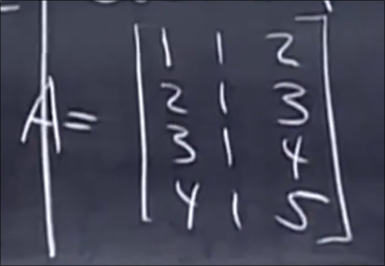 A = [1 1 2
2 1 3
3 1 4
4 1 5]